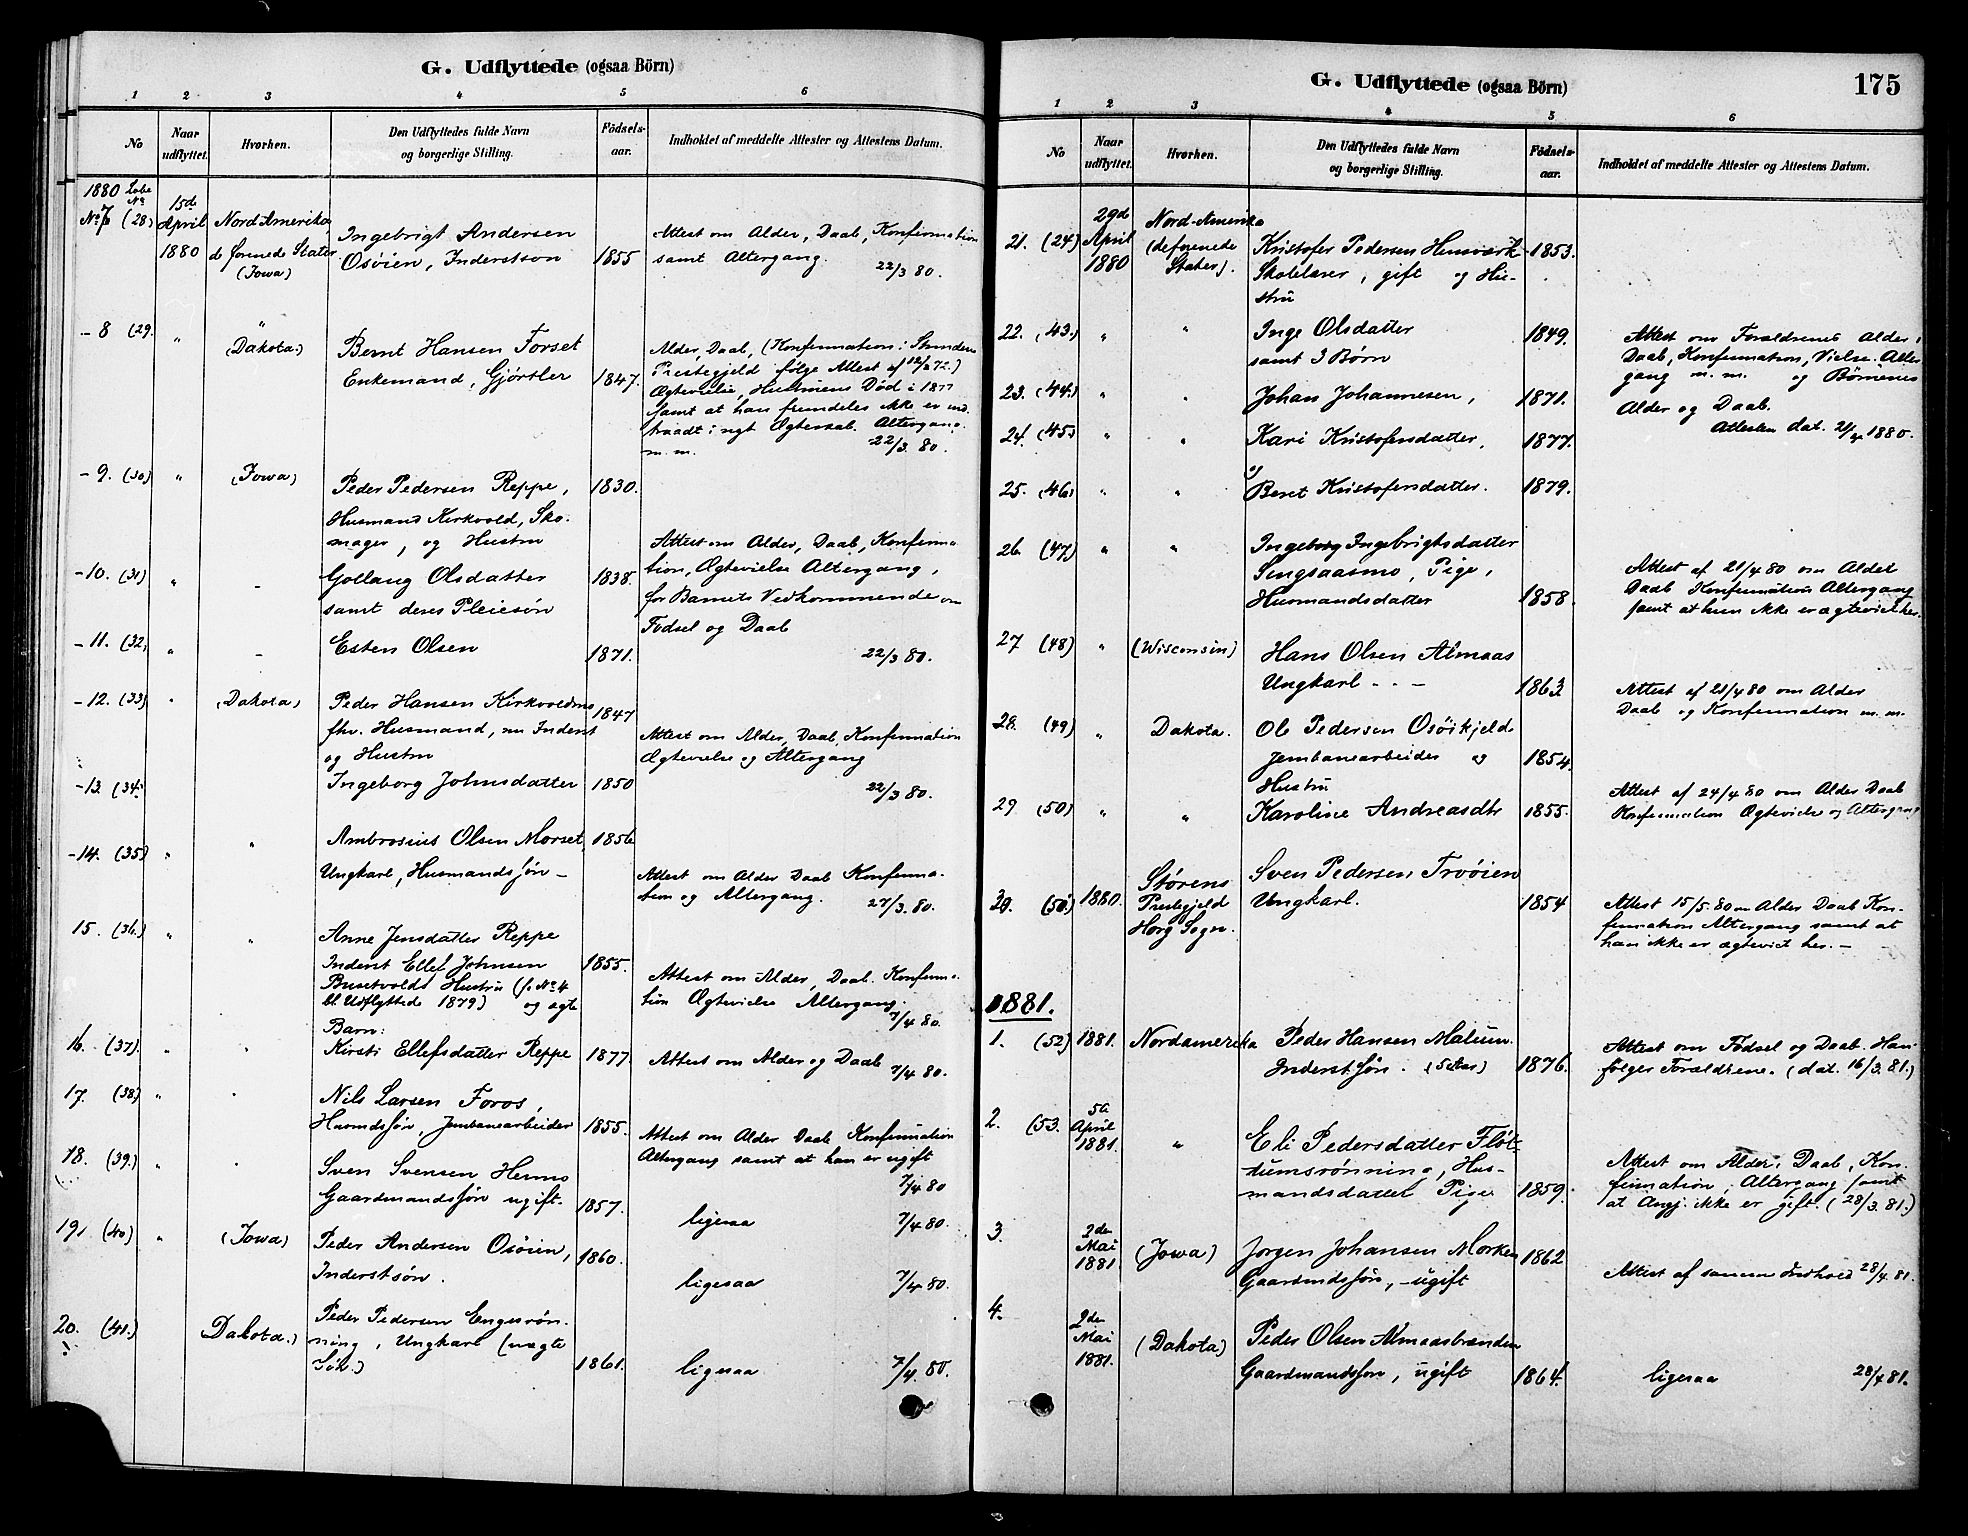 G. Udflyttede (ogsaa Börn)
1 2 3 4 5 6
No
Naar udflyttet.
Hvorhen.
Den Udflyttedes fulde Navn
og borgerlige Stilling.
Födsels-
aar.
Indholdet af meddelte Attester og Attestens Datum.
1880 Løbe No
No 7 (28) 15de April 1880 Nord Amerika
d forenede Stater
(Iowa)
Ingebrigt Andersen
Osöien, Inderstsøn 1855
Attest om Alder, Daab, Konfirmation
samt Altergang. 22/3 80.
- 8 (29. " "
(Dakota.)
Bernt Hansen Forset
Enkemand, Gjørtler 1847.
Alder, Daab, (Konfirmation i
Prestegjeld følge Attest af 12/2 72.)
Ægtevielse, Hustruens Død i 1877
samt at han fremdeles ikke er ind-
traadt i nyt Ægteskab. Altergang
m. m. 22/3. 80.
- 9. (30) " (Iowa)
Peder Pedersen Reppe, 1830.
Husmand Kirkvold, Sko-
mager, og Hustru
-10. (31) " -
Gollaug Olsdatter 1838.
samt deres Pleiesøn
Attest om Alder, Daab, Konfirma-
tion, Ægtevielse Altergang,
for Barnets Vedkommende om
Fødsel og Daab
22/3 80.
-11. (32, " -
Esten Olsen 1871.
-12. (33) " (Dakota)
Peder Hansen Kirkvoldmo 1847
fhv. Husmand, nu Inderst
og Hustru
-13 (34.
Ingeborg Johnsdatter 1850
Attest om Alder, Daab, Konfirmation
Ægtevielse og Altergang
22/3 80.
-14. (35) " "
Ambrosius Olsen Morset, 1856
Ungkarl, Husmandssøn -
Attest om Alder Daab Konfirma-
tion og Altergang. 27/3. 80.
15. (36.) " "
Anne Jensdatter Reppe
Inderst Ellef Johnsen 1855.
Busetvolds Hustru (se No 4
bl. Udflyttede 1879) og ægte
Barn:
Attest om Alder, Daab. Konfirma-
tion Ægtevielse Altergang.
7/4 80.
16. (37). " "
Kirsti Ellefsdatter Reppe 1877.
Attest om Alder og Daab 7/4 80.
17. (38) " "
Nils Larsen Foros,
Husmdssøn, Jernbanearbeider 1855.
Attest om Alder Daab Konfirmation
Altergang samt at han er ugift
7/4 80
18. (39.) " "
Sven Svensen Hermo
Gaardmandssøn ugift. 1857.
ligesaa 7/4 80.
19. (40) " (Iowa)
Peder Andersen Osöien,
Inderstsøn. 1860.
ligesaa 7/4 80.
20. (41.) Dakota.)
Peder Pedersen Engesrøn-
ning, Ungkarl (uægte
Søn.) 1861.
ligesaa 7/4. 80.
G. Udflyttede (ogsaa Börn)
175
1 2 3 4 5 6
No
Naar udflyttet.
Hvorhen.
Den Udflyttedes fulde Navn
og borgerlige Stilling.
Födsels-
aar.
Indholdet af meddelte Attester og Attestens Datum.
21. (24) 29de April 1880
Nord-Amerika
(de forenede
Stater).
Kristofer Pedersen 1853.
Skolelærer, gift og Hu-
stru
22. (43.) " "
Inge Olsdatter 1849.
samt 3 Børn
Attest om Forældrenes Alder,
Daab, Konfirmation, Vielse. Alter-
gang m. m. og Børnenes
Alder og Daab.
Attesten dat. 21/4 1880.
23. (44.) " "
Johan Johannesen, 1871.
24. (45) " "
Kari Kristofersdatter, 1877.
25. (46) " "
og
Beret Kristofersdatter. 1879.
26. (47.) " "
Ingeborg Ingebrigtsdatter
Singsaasmo, Pige,
Husmandsdatter 1858.
Attest af 21/4 80 om Alder
Daab Konfirmation Altergang
samt at hun ikke er ægteviet her.
27 (48) " (Wisconsin)
Hans Olsen Almaas
Ungkarl - - - 1863
Attest af 23/4 80 om Alder
Daab og Konfirmation m. m.
28. (49) " Dakota.
Ole Pedersen Osöikjeld
Jernbanearbeider og 1854.
Hustru
29 (50) " "
Karoline Andreasdtr 1855.
Attest af 24/4 80 om Alder Daab
Konfirmation Ægtevielse og Altergang
30. (51) 1880.
Størens
Prestegjeld
Horg Sogn.
Sven Pedersen Trøöien
Ungkarl. 1854
Attest 15/5. 80 om Alder Daab Kon-
firmation Altergang samt at
han ikke er ægteviet her. -
1881.
1. (52) 1881. Nordamerika
Peder Hansen Malum
Inderst.Søn. 1876.
Attest om Fødsel og Daab. Han
følger Forældrene. (dat. 16/3. 81.)
2. (53. 5te April 1881. "
Eli Pedersdatter Fløt-
tumsrønning, Hus-
mandsdatter Pige 1859.
Attest om Alder, Daab, Kon-
firmation, Altergang samt
at Angj. ikke er gift. (28/3. 81.)
3. 2den Mai 1881 (Iowa)
Jørgen Johansen Morken 1862
Gaardmdssøn, - ugift
Attest af samme Indhold 28/4. 81.
4. 2den Mai 1881. (Dakota)
Peder Olsen Almaasbrænden
Gaardmandssøn, ugift 1864.
ligesaa 28/4 81.